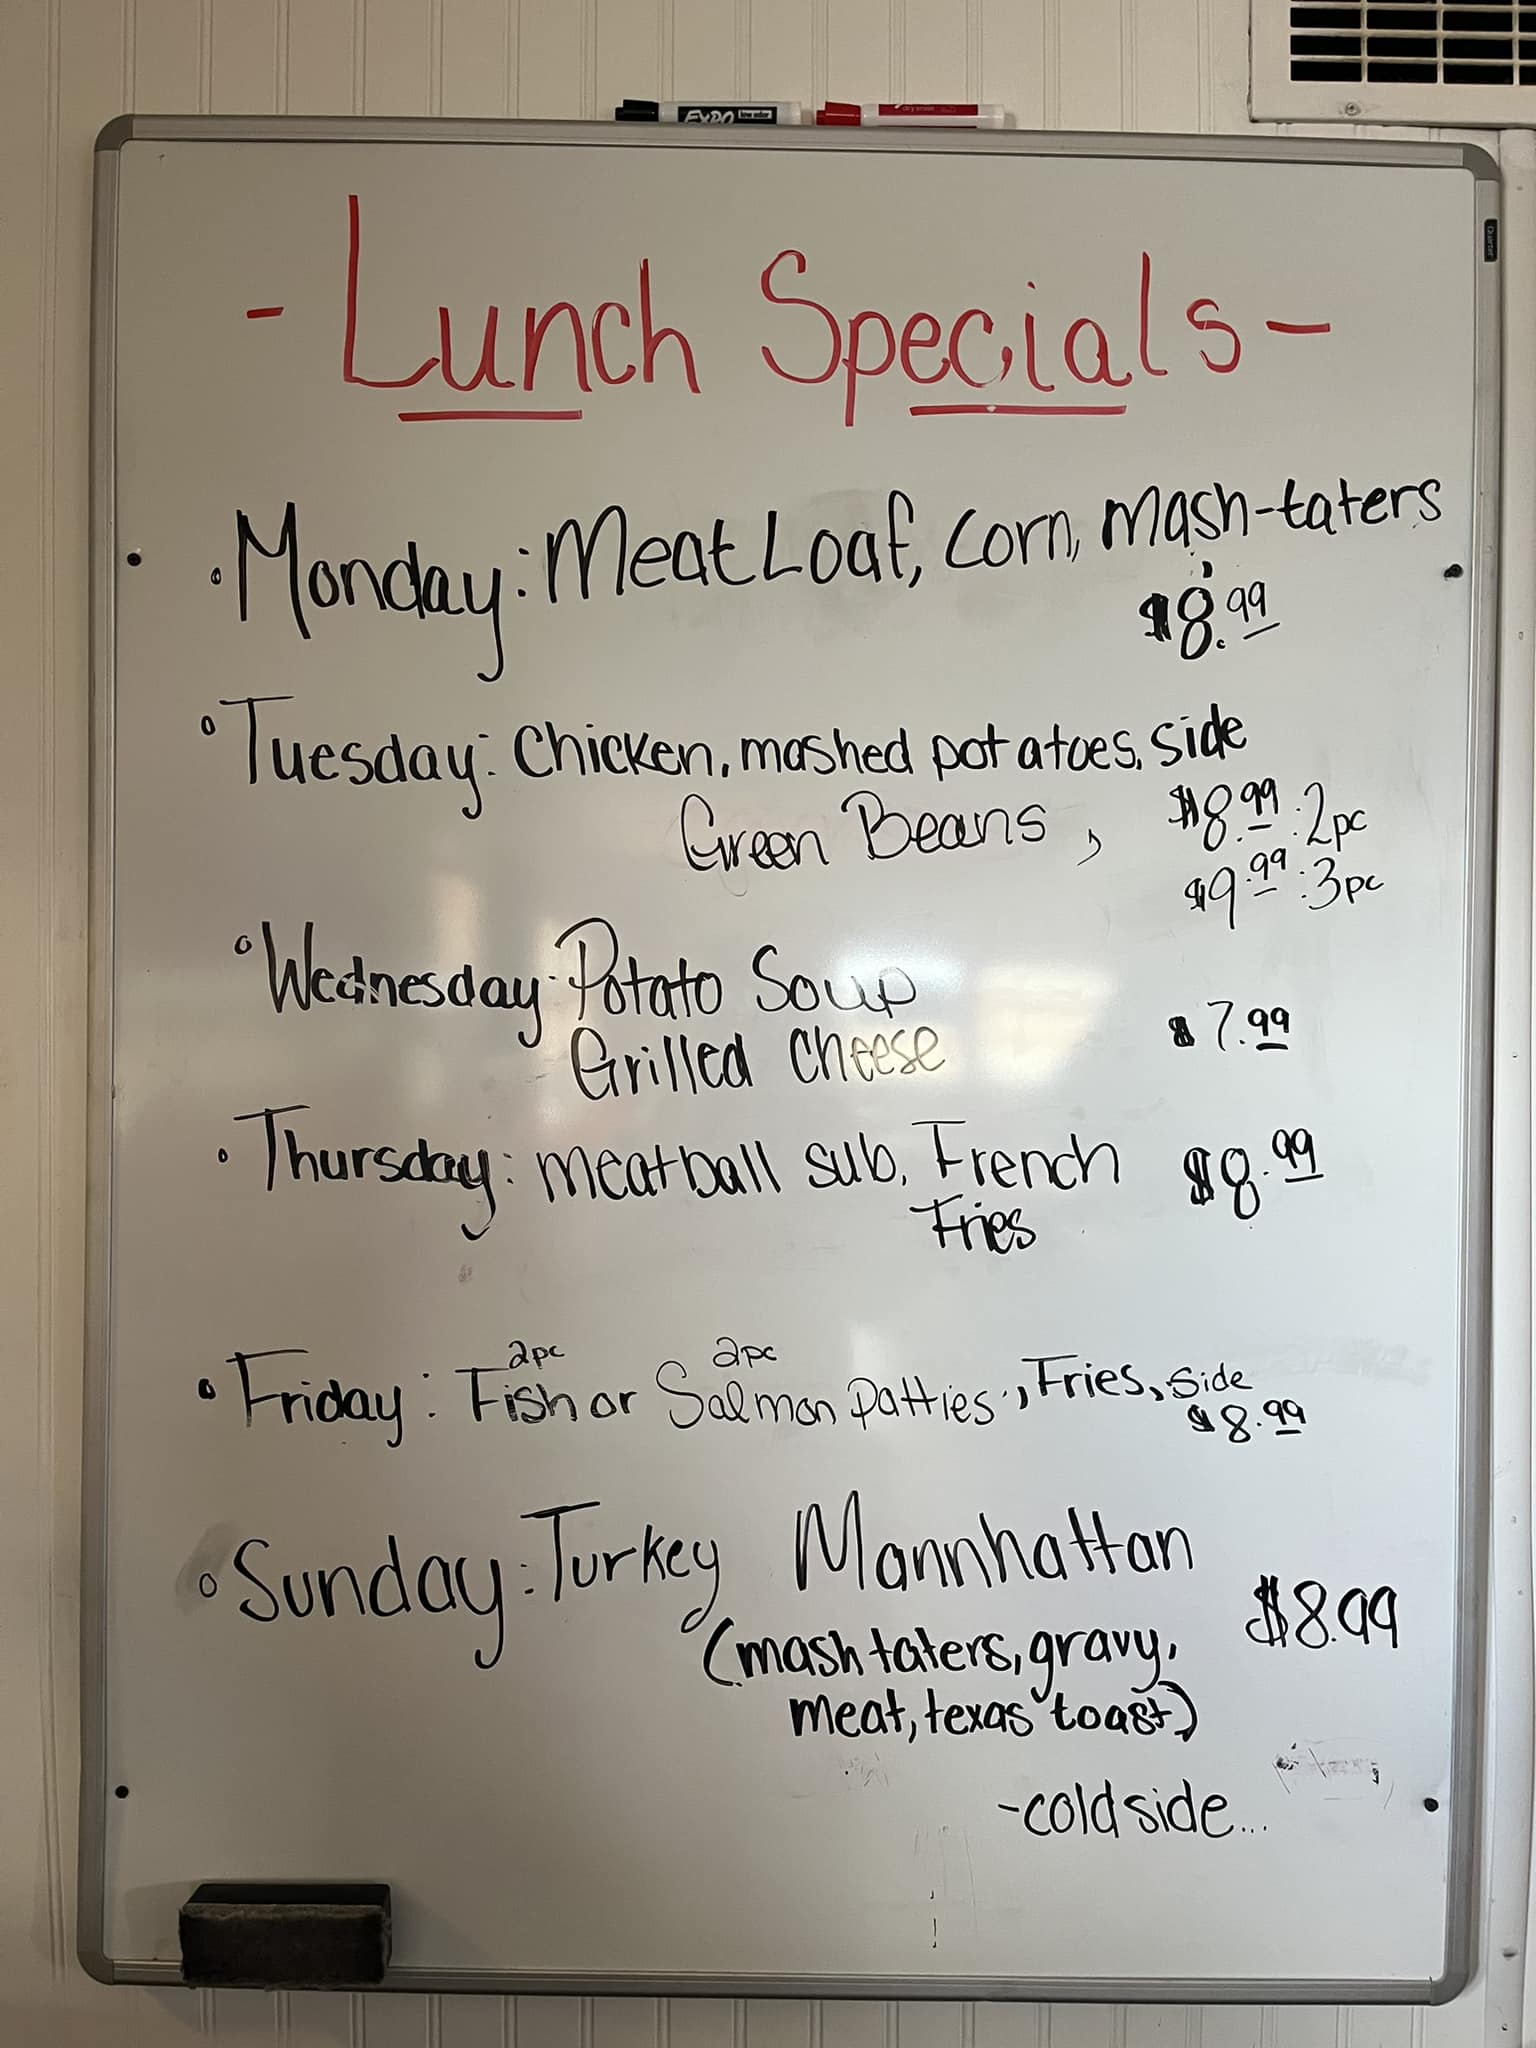 EXPO low odor
dry erase
Quartet
- Lunch Specials -
• Monday: Meat Loaf, Corn, mash-taters
$8.99
• Tuesday: Chicken, mashed potatoes, side
Green Beans, $8.99 : 2pc
$9.99 : 3pc
• Wednesday: Potato Soup
Grilled Cheese $7.99
• Thursday: meatball sub, French $8.99
Fries
2pc 2pc
• Friday: Fish or Salmon Patties, Fries, side
$8.99
• Sunday: Turkey Mannhattan
$8.99
(mash taters, gravy,
meat, texas toast)
-cold side...